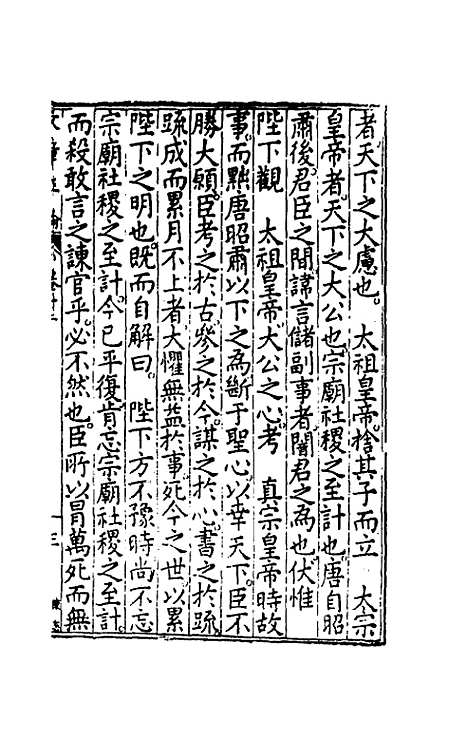 者天下之大慮也。　太祖皇帝。捨其子而立　太宗
皇帝者。天下之大公也。宗廟社稷之至計也。唐自昭
肅後。君臣之間。諱言儲副事者。闇君之爲也。伏惟
陛下觀　太祖皇帝大公之心。考　真宗皇帝時故
事。而黜唐昭肅以下之爲。斷于聖心。以幸天下。臣不
勝大願。臣考之於古。參之於今。謀之於心。書之於疏。
疏成而累月不上者。大懼無益於事。死今之世以累
陛下之明也。既而自解曰。　陛下方不豫時尚不忘
宗廟社稷之至計。今已平復。肯忘宗廟社稷之至計。
而殺敢言之諫官乎。必不然也。臣所以冒萬死而無